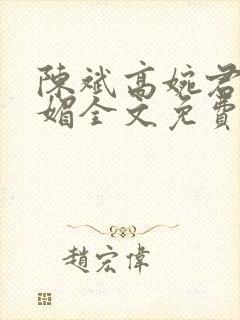 陳斌高婉君
媚全文免費
趙宏偉